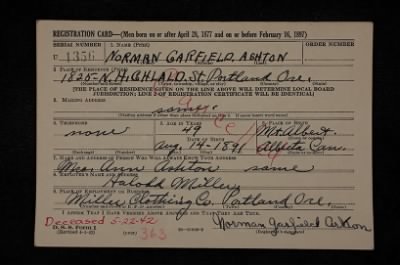 REGISTRATION CARD—(Men born on or after April 28, 1877 and on or before February 16, 1897)
SERIAL NUMBER 1. NAME (Print) ORDER NUMBER
U 1356 NORMAN GARFIELD ASHTON
2. PLACE OF RESIDENCE (Print)
1825-N. HIGHLALD. St. Portland Ore.
[THE PLACE OF RESIDENCE GIVEN ON THE LINE ABOVE WILL DETERMINE LOCAL BOARD
JURISDICTION; LINE 2 OF REGISTRATION CERTIFICATE WILL BE IDENTICAL]
3. MAILING ADDRESS
same
4. TELEPHONE 5. AGE IN YEARS 6. PLACE OF BIRTH
none 49 Mt. Albert
DATE OF BIRTH
Aug. 14-189 Can.
7. NAME AND ADDRESS OF PERSON WHO WILL ALWAYS KNOW YOUR ADDRESS
Mrs. Ann Ashton same
8. EMPLOYER'S NAME AND ADDRESS
Harold Miller
9. PLACE OF EMPLOYMENT OR BUSINESS
Miller Clothing Co. Portland Ore.
I AFFIRM THAT I HAVE VERIFIED ABOVE ANSWERS AND THAT THEY ARE TRUE.
Deceased 5-22-42
D. S. S. Form 1
(Revised 4-1-42) (over) 363
Norman Garfield Ashton